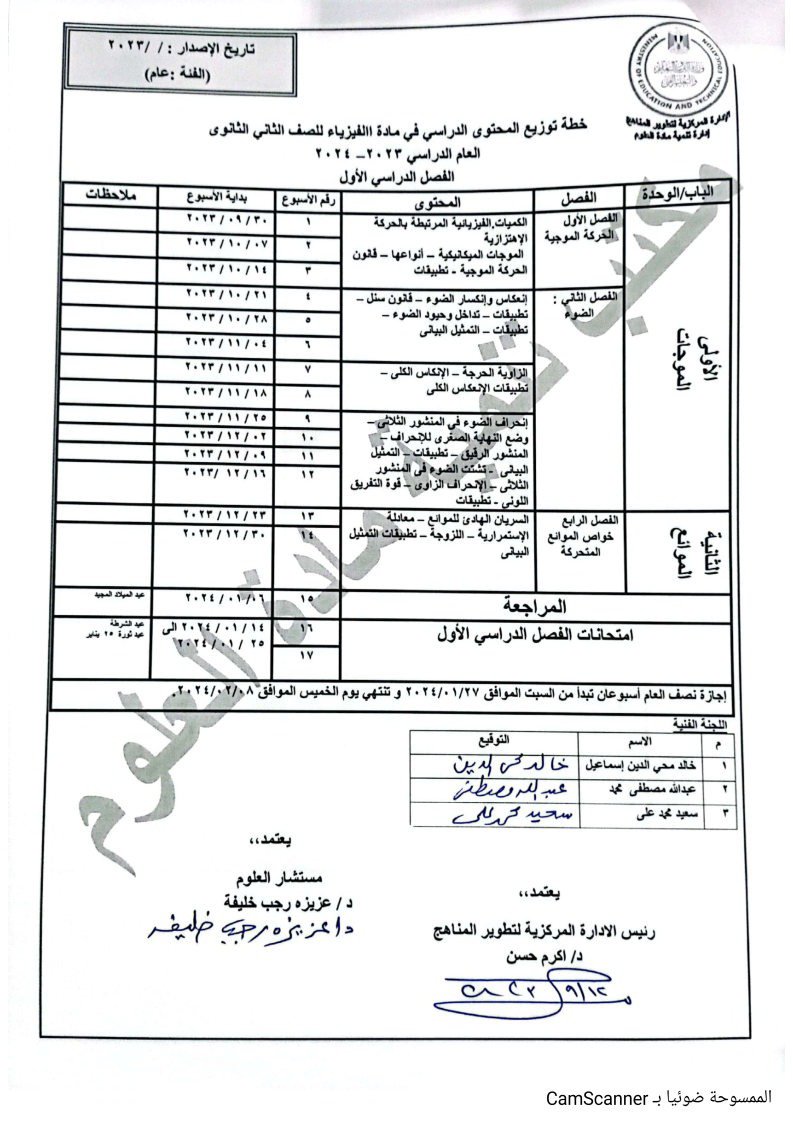 تاريخ الإصدار : / /٢٠٢٣
(الفئة :عام)
MINISTRY OF EDUCATION AND TECHNICAL EDUCATION
الإدارة المركزية لتطوير المناهج
إدارة تنمية مادة العلوم
خطة توزيع المحتوى الدراسي في مادة االفيزياء للصف الثاني الثانوى
العام الدراسي ٢٠٢٣– ٢٠٢٤
الفصل الدراسي الأول
الباب/الوحدة الفصل المحتوى رقم الأسبوع بداية الأسبوع ملاحظات
الأولى
الموجات
الفصل الأول
الحركة الموجية
الكميات,الفيزيائية المرتبطة بالحركة
الإهتزازية
الموجات الميكانيكية – أنواعها – قانون
الحركة الموجية - تطبيقات
١ ٣٠ / ٠٩ / ٢٠٢٣
٢ ٠٧ / ١٠ / ٢٠٢٣
٣ ١٤ / ١٠ / ٢٠٢٣
الفصل الثاني :
الضوء
إنعكاس وإنكسار الضوء – قانون سنل –
تطبيقات – تداخل وحيود الضوء –
تطبيقات – التمثيل البيانى
٤ ٢١ / ١٠ / ٢٠٢٣
٥ ٢٨ / ١٠ / ٢٠٢٣
٦ ٠٤ / ١١ / ٢٠٢٣
الزاوية الحرجة – الإنكاس الكلى –
تطبيقات الإنعكاس الكلى
٧ ١١ / ١١ / ٢٠٢٣
٨ ١٨ / ١١ / ٢٠٢٣
إنحراف الضوء في المنشور الثلاثى –
وضع النهاية الصغرى للإنحراف –
المنشور الرقيق – تطبيقات – التمثيل
البيانى - تشتت الضوء فى المنشور
الثلاثى – الإنحراف الزاوى – قوة التفريق
اللونى - تطبيقات
٩ ٢٥ / ١١ / ٢٠٢٣
١٠ ٠٢ / ١٢ / ٢٠٢٣
١١ ٠٩ / ١٢ / ٢٠٢٣
١٢ ١٦ / ١٢ /٢٠٢٣
الثانية
الموائع
الفصل الرابع
خواص الموائع
المتحركة
السريان الهادئ للموائع – معادلة
الإستمرارية – اللزوجة – تطبيقات التمثيل
البيانى
١٣ ٢٣ / ١٢ / ٢٠٢٣
١٤ ٣٠ / ١٢ / ٢٠٢٣
المراجعة ١٥ ٢٠٢٤/٠١/٠٦ عيد الميلاد المجيد
امتحانات الفصل الدراسي الأول
١٦ ١٤ / ٠١ / ٢٠٢٤ الى
١٧ ٢٥ / ٠١ / ٢٠٢٤
عيد الشرطة
عيد ثورة ٢٥ يناير
إجازة نصف العام أسبوعان تبدأ من السبت الموافق ٢٠٢٤/٠١/٢٧ و تنتهي يوم الخميس الموافق ٢٠٢٤/٠٢/٠٨.
اللجنة الفنية
م الاسم التوقيع
١ خالد محي الدين إسماعيل خالد محي الدين
٢ عبدالله مصطفى محمد عبد الله مصطفى
٣ سعيد محمد على سعيد محمد على
يعتمد،،
مستشار العلوم
د/ عزيزه رجب خليفة
د/ عزيزه رجب خليفه
يعتمد،،
رئيس الادارة المركزية لتطوير المناهج
د/ اكرم حسن
مكتب تنمية مادة العلوم
الممسوحة ضوئيا بـ CamScanner